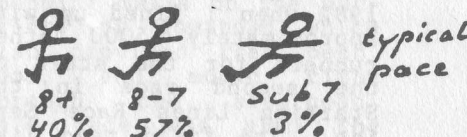 typical
pace
8+ 8-7 Sub 7
40% 57% 3%